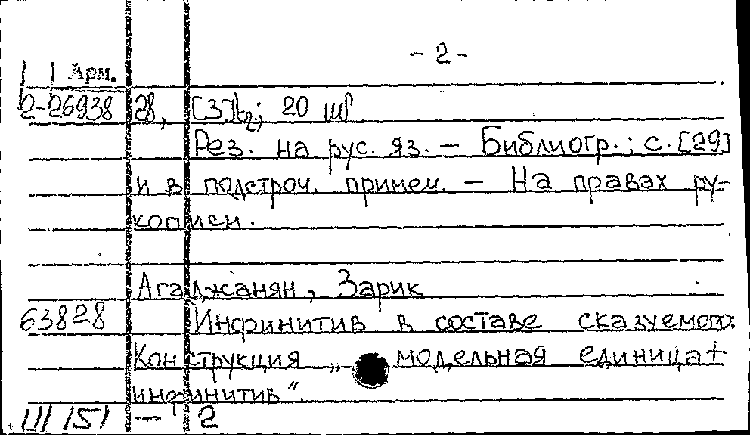 - 2 -
Арм.
2-26938 28, [3] էջ; 20 սմ
Рез. на рус. яз. — Библиогр.: с. [29]
и в подстроч. примеч. — На правах ру-
кописи.
Агаджанян, Зарик
63828 Инфинитив в составе сказуемого:
Конструкция „модельная единица +
инфинитив“.
III 151 — 2